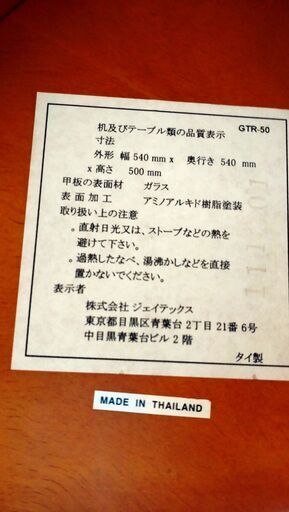 机及びテーブル類の品質表示 GTR-50
寸法
外形 幅540mm x 奥行き 540 mm
x 高さ 500mm
甲板の表面材 ガラス
表面加工 アミノアルキド樹脂塗装
取り扱い上の注意
。直射日光又は、ストーブなどの熱を
避けて下さい。
。過熱したなべ、湯沸かしなどを直接
置かないでください。
表示者
株式会社 ジェイテックス
東京都目黒区青葉台2丁目21番6号
中目黒青葉台ビル2階
タイ製
MADE IN THAILAND